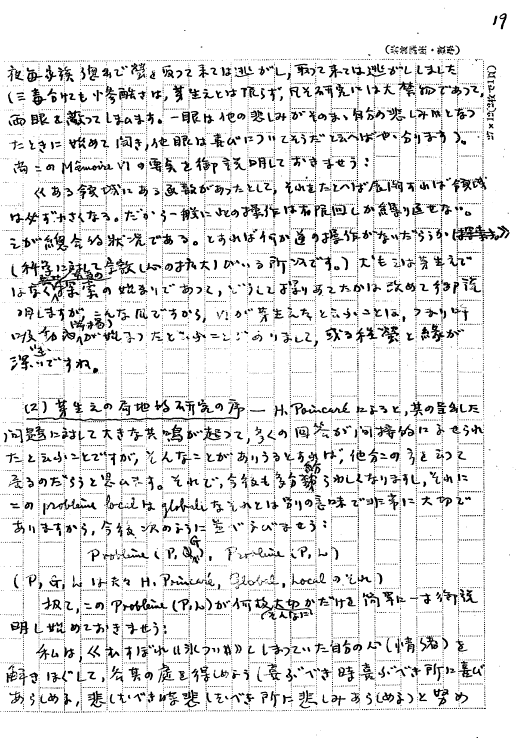 19
夜毎家族総出で螢を取って来ては逃がし、取って来ては逃がししました
(三毒分けても 酷さは、芽生えとは限らず、凡そ研究には大禁物であって、
両眼を敝ってしまのます。一眼は他の悲しみがそのまゝ自分の悲しみとなっ
たときに始めて開き、他眼は喜びについてそうだと云へばや、合ります)。
尚このMémoire VIの要気を御説明しておきませう:
《ある領域にある函数があったとして、それをたとへば展開すれば領域
は必ずわさくなる。だから一般に此の操作は有限回しか繰り返せない。
之が総合的状況である。とすれば何か逆の操作がないだらうか
(科学に対して宗教(心の拡大)がいる所以です。)尤も之は芽生えで
はなく探索の始まりであって、どうして探りあてたかは改めて御説
明しますが、こんな風ですから、VIが芽生えたと云ふことは、つまり呼
吸 が始まったと云ふことでありまして、或る経営と縁が
深いですね。
(2) 芽生えの局地的研究の序 — H. Poincaré によると、其の呈出した
問題に対して大きな共鳴が起って、多くの回答が間接的によせられ
たと云ふことですが、そんなことがありうるとすれば、他分この事を云って
居るのだらうと思ひます。それで、今後も多分紛らわしくなりますし、それに
この problème local は global なそれとは別の意味で非常に大切で
ありますから、今後次のように並びよびませう:
Problème (P, G), Problème (P, L)
(P, G, L は夫々 H. Poincaré, Global, Local のそれ)
扨て、この Problème (P, L) が何故大切かだけを簡単に一寸御説
明し始めておきませう:
私は、《むすぼれ》《氷つい》としまっていた自分の心(情緒)を
解きほぐして、各其の処を得しめよう(喜ぶべき時喜ぶべき所に喜び
あらしめ、悲しむべき時悲しむべき所に悲しみあらしめる)と努め